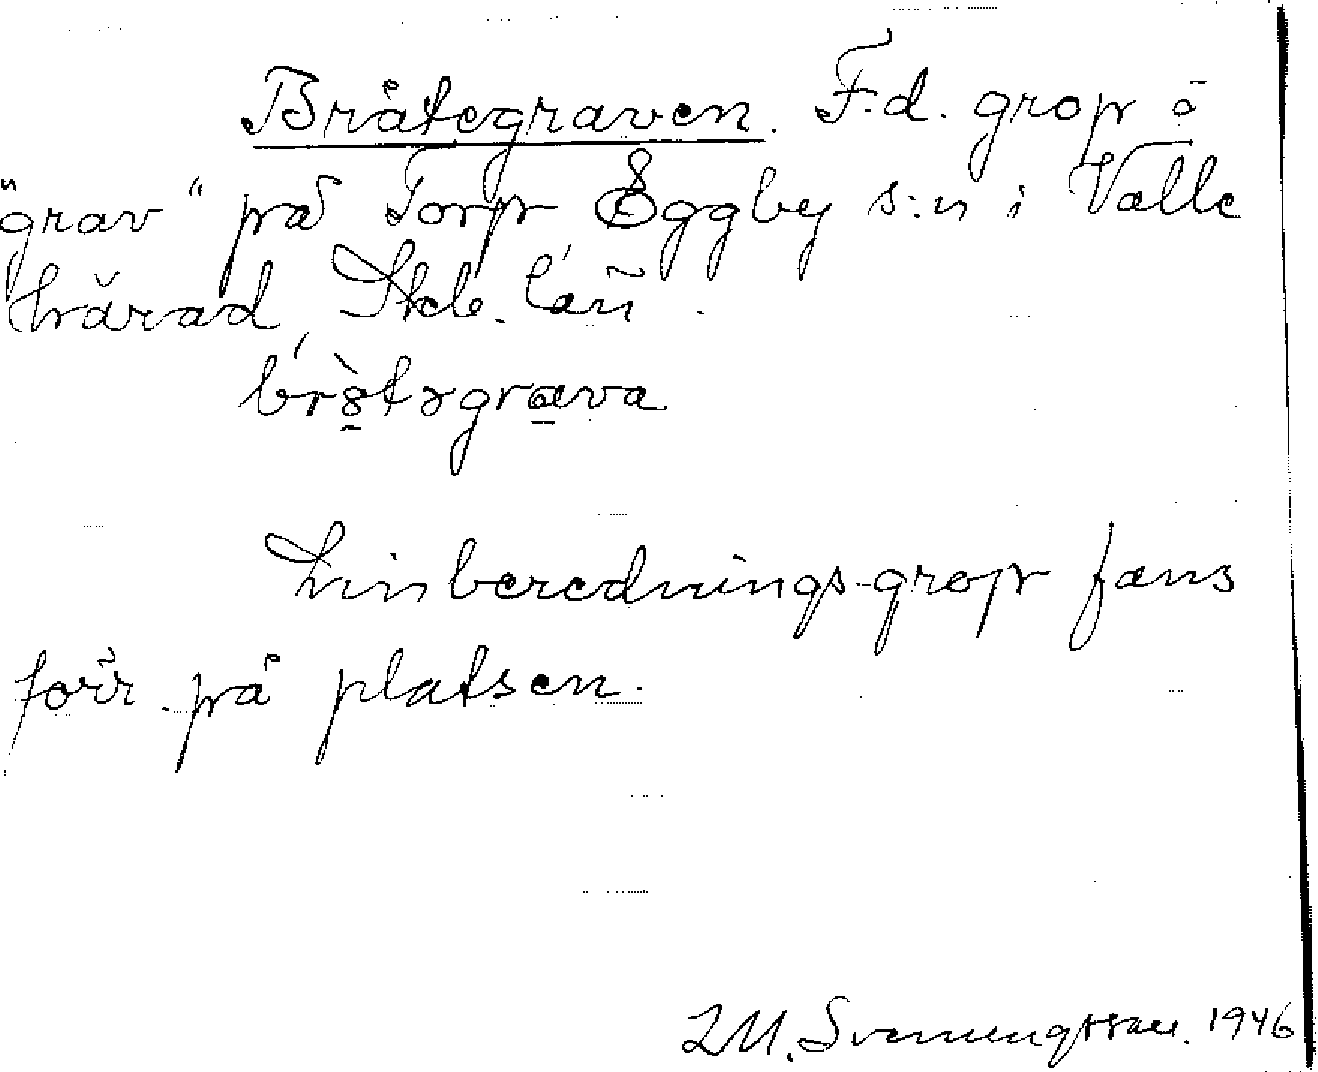 Bråtegraven. F.d. grop å
"grav" på Torp Eggby s:n i Valle
härad, Skb. län.
Linberednings-grop fans
förr på platsen.
Svenungsson. 1946